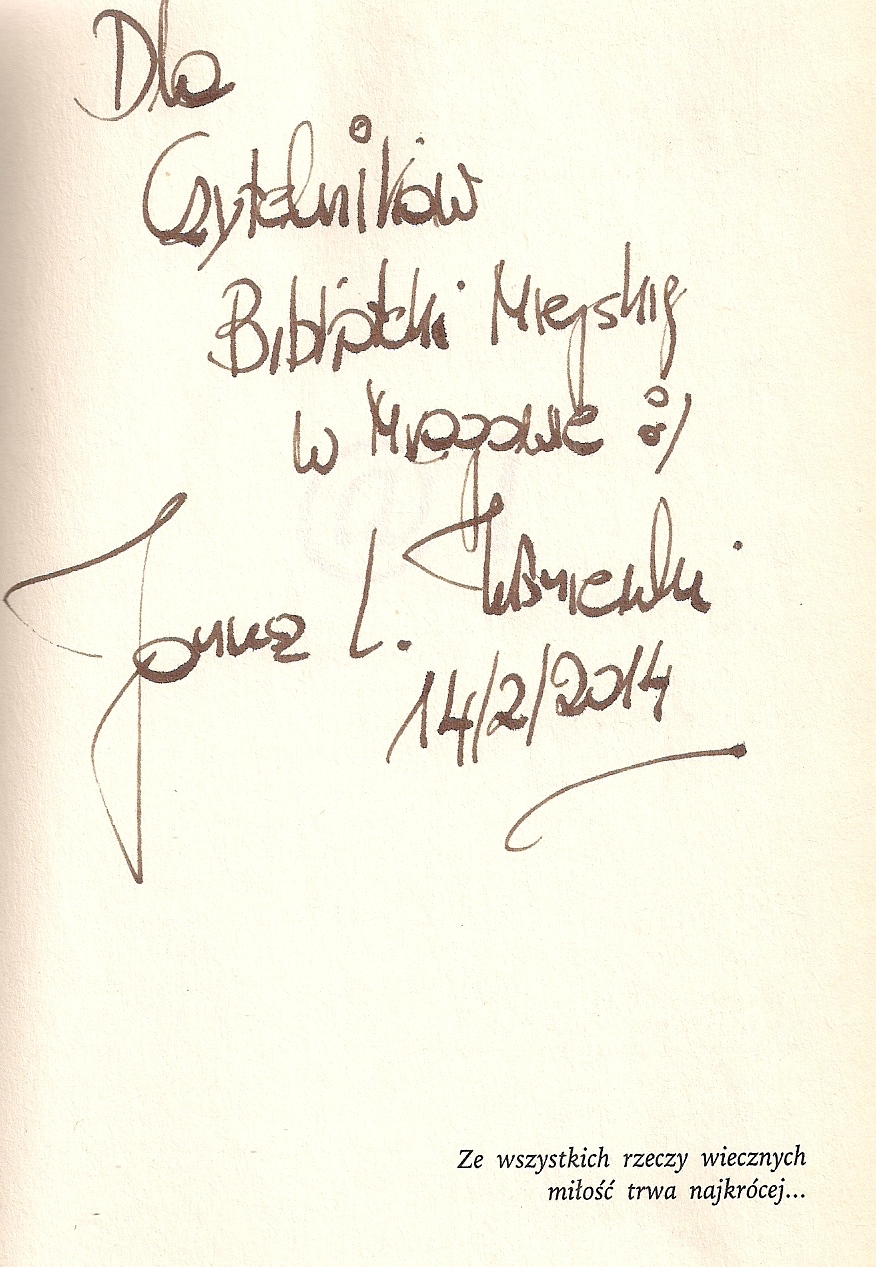 Dla
Czytelników
Biblioteki Miejskiej
w Mrągowie :)
Janusz L. Wiśniewski
14/2/2014
Ze wszystkich rzeczy wiecznych
miłość trwa najkrócej...